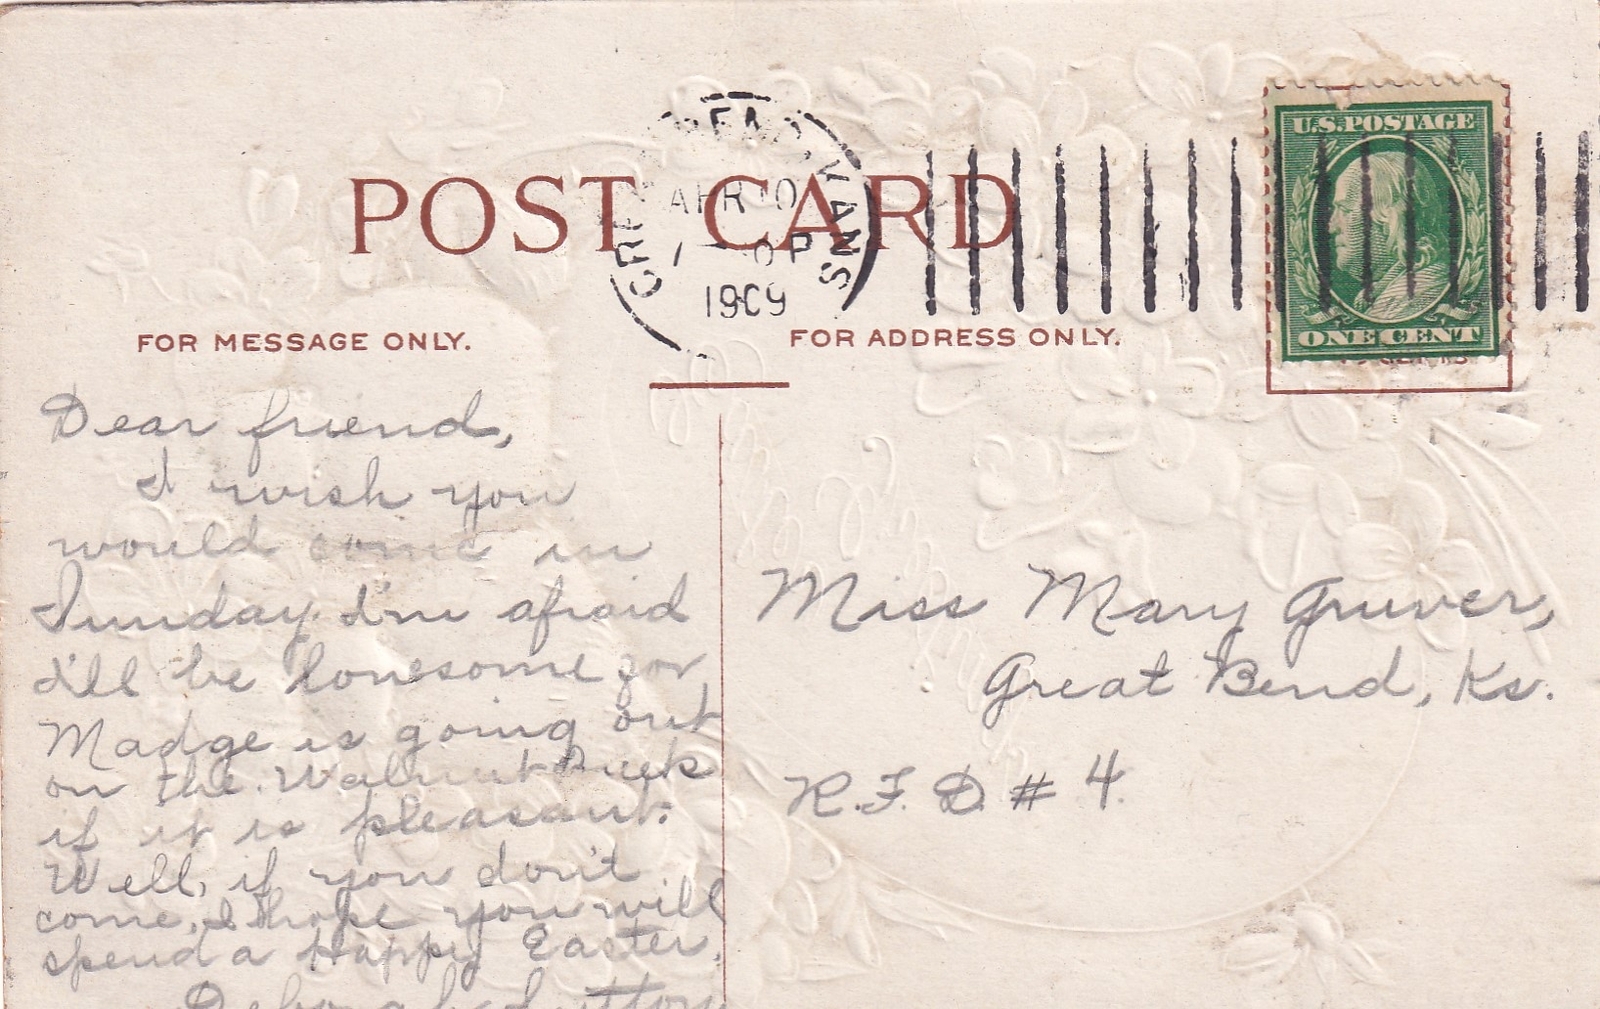 POST CARD
GREAT BEND, KANS
APR 10
P
1909
U.S. POSTAGE
ONE CENT
FOR MESSAGE ONLY.
FOR ADDRESS ONLY.
Dear friend,
I wish you
would come in
Sunday. I'm afraid
I'll be lonesome for
Madge is going out
on the Walnut Creek
if it is pleasant.
Well, if you don't
come, I hope you will
spend a Happy Easter.
Deborah
Miss Mary Gruver,
Great Bend, Ks.
R.F.D. # 4.